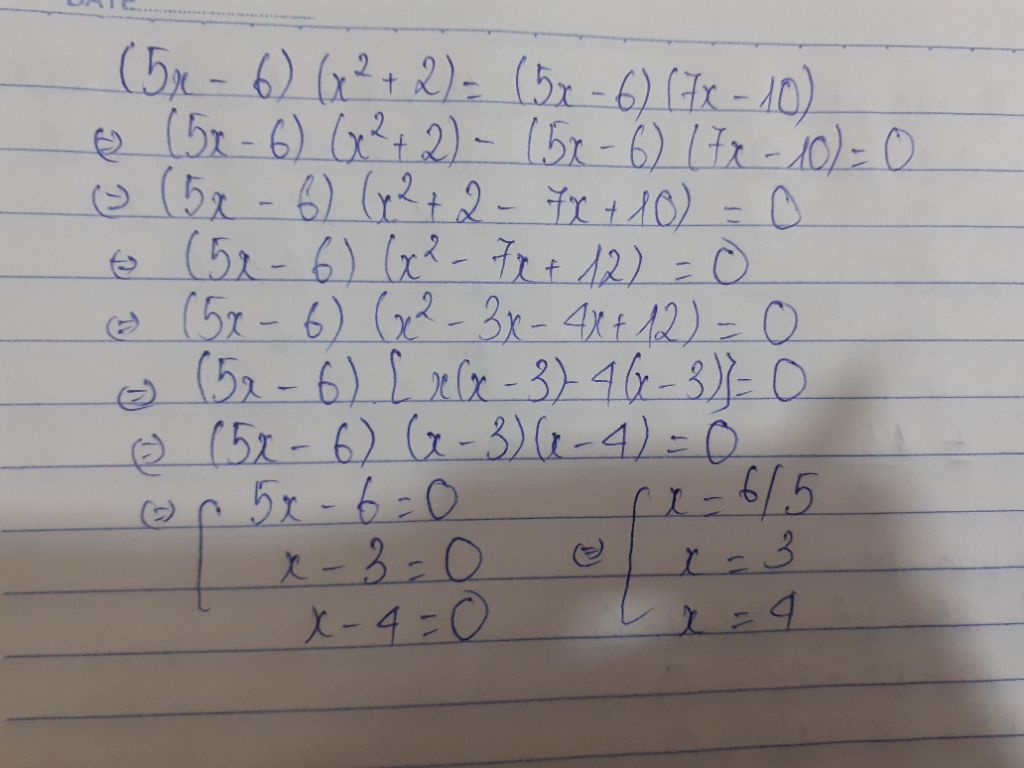 DATE
(5x - 6) (x² + 2) = (5x - 6) (7x - 10)
⇔ (5x - 6) (x² + 2) - (5x - 6) (7x - 10) = 0
⇔ (5x - 6) (x² + 2 - 7x + 10) = 0
⇔ (5x - 6) (x² - 7x + 12) = 0
⇔ (5x - 6) (x² - 3x - 4x + 12) = 0
⇔ (5x - 6) [x(x - 3) - 4(x - 3)] = 0
⇔ (5x - 6) (x - 3)(x - 4) = 0
⇔ [ 5x - 6 = 0 ⇔ [ x = 6/5
x - 3 = 0 x = 3
x - 4 = 0 x = 4